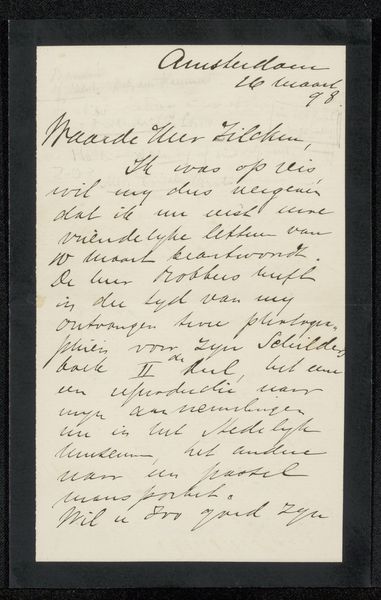 Amsterdam
26 maart
98.
Waarde Heer Zilcken,
Ik was op reis,
wil my dus vergeven
dat ik nu eerst uwe
vriendelyke letteren van
10 maart beantwoordt.
De heer Robbers heeft
in die tyd van my
ontvangen twee photogra-
phien voor zyn Schilders
boek II de deel, het eene
een reproductie naar
myn aannemelingen
nu in het Stedelyk
Museum, het andere
naar een pastel
mansportret.
Wil u zoo goed zyn